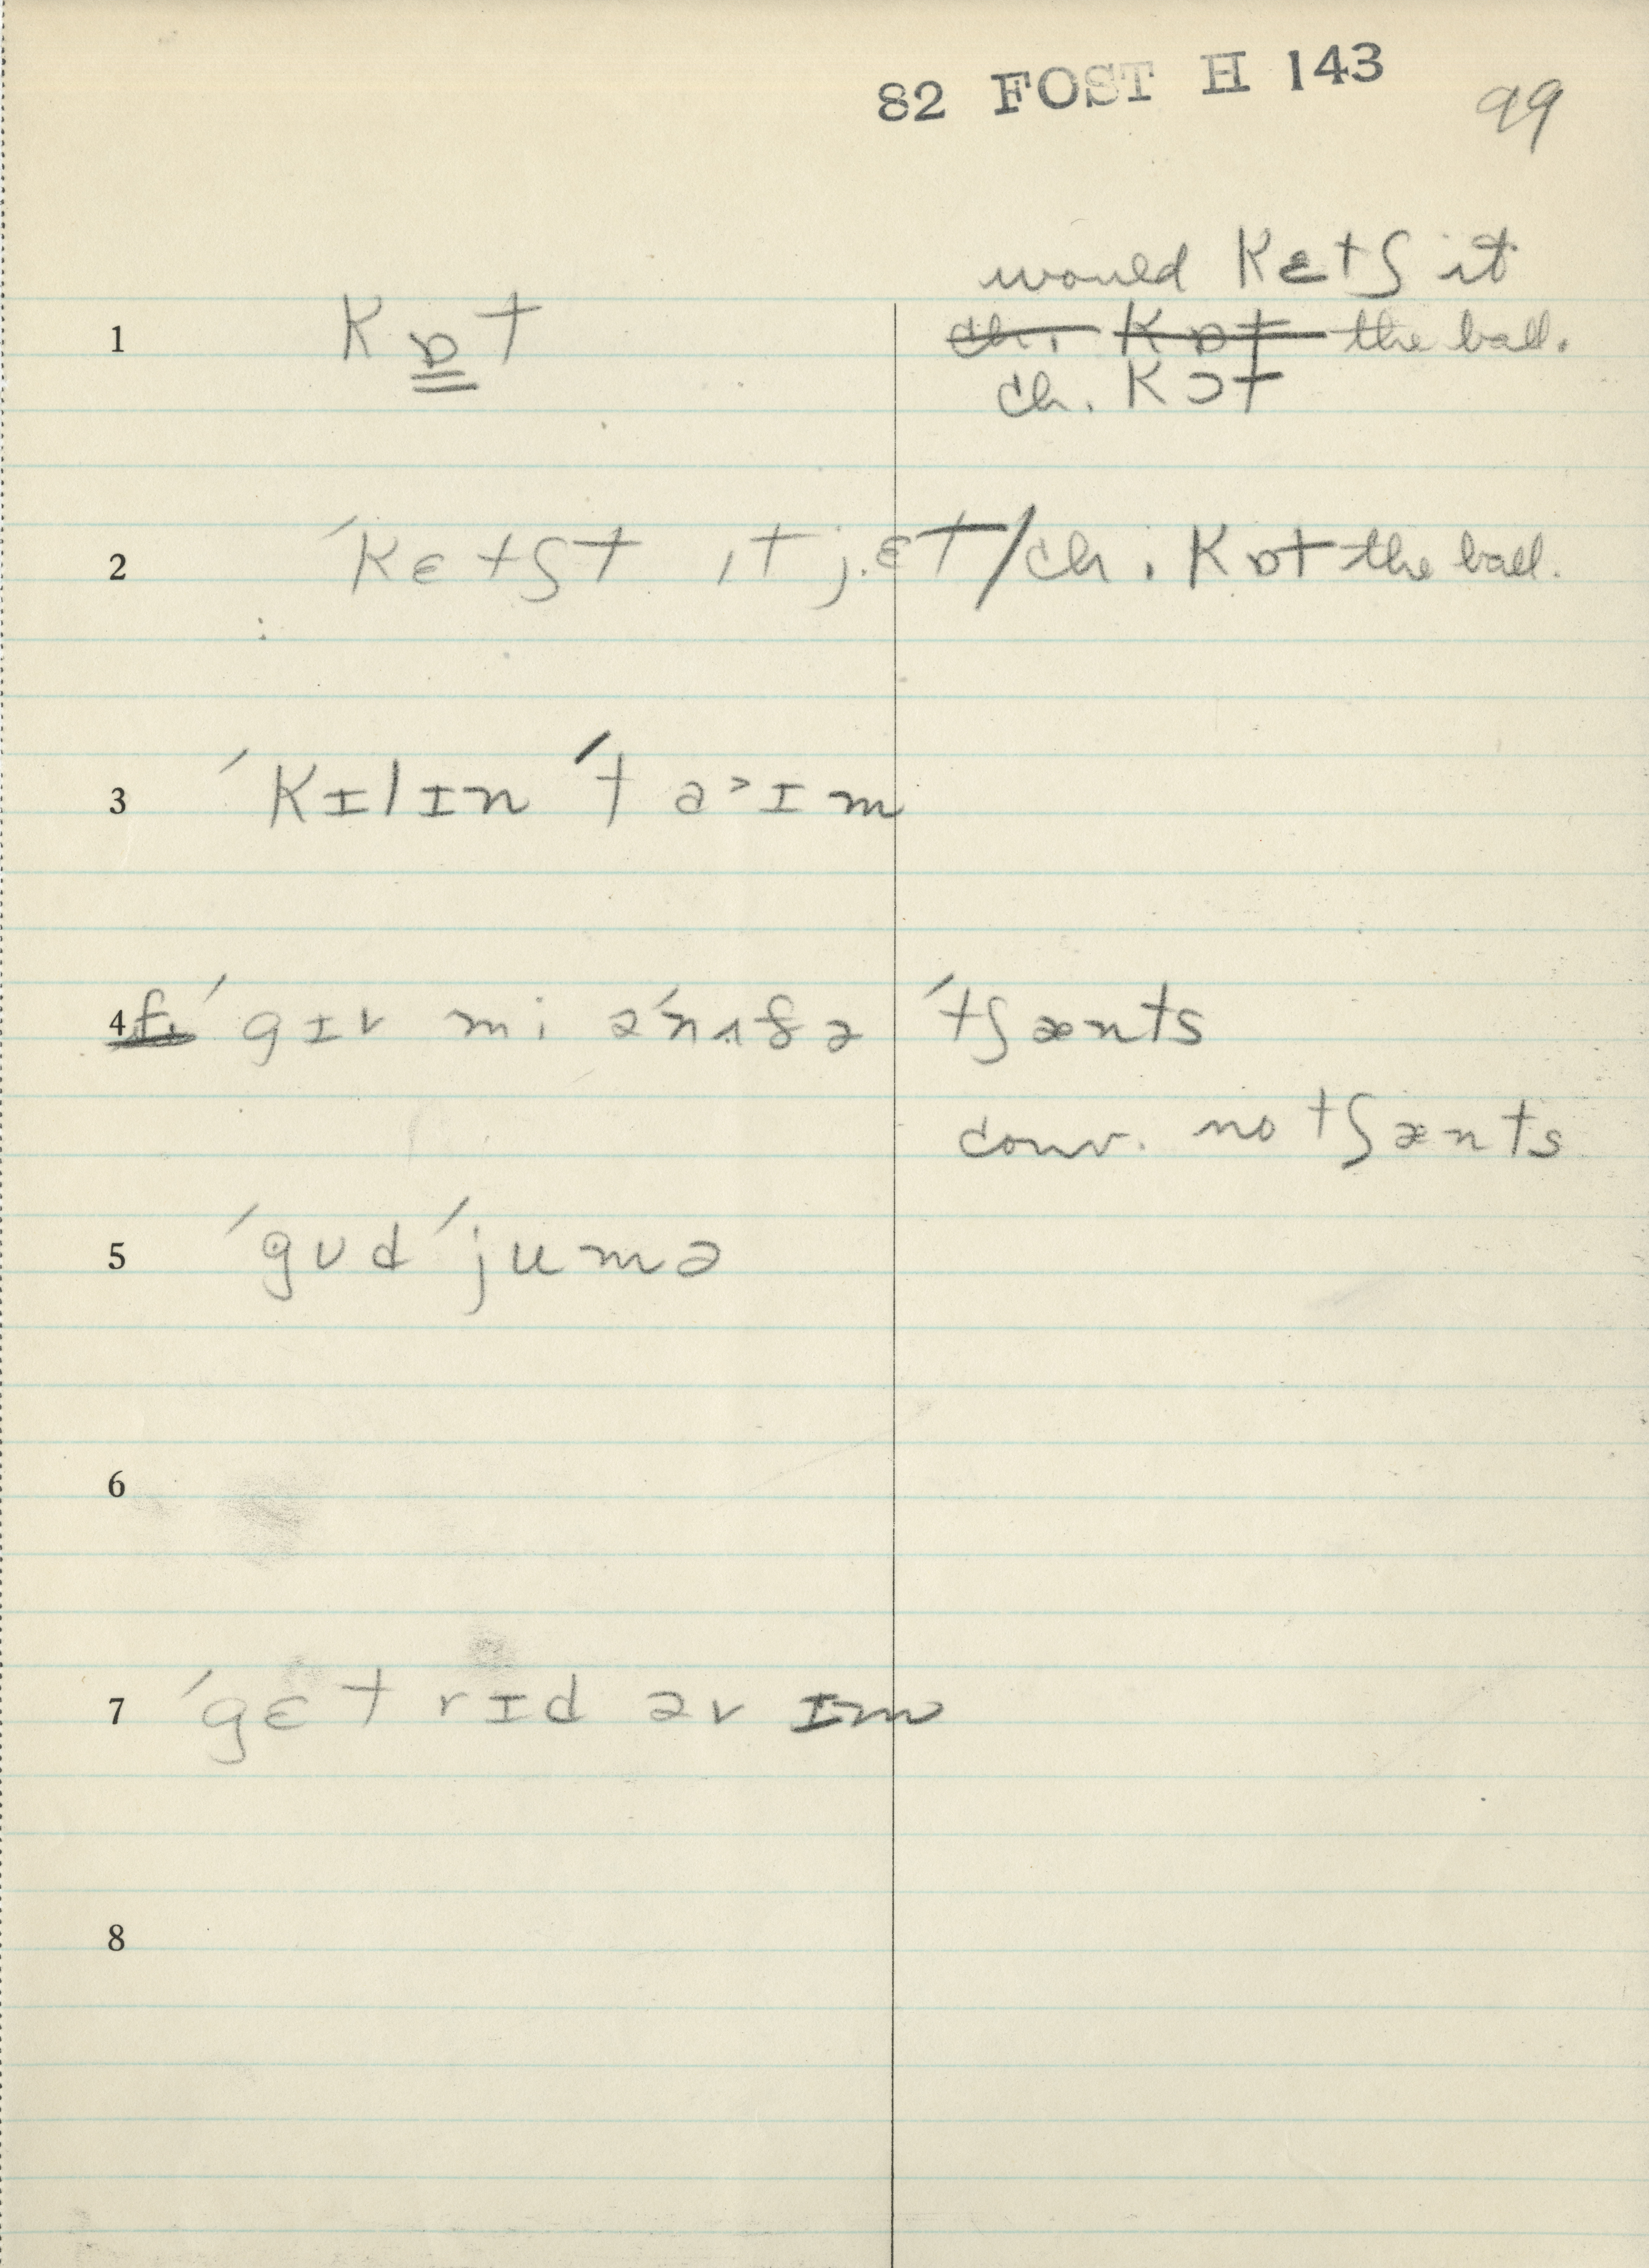 82 FOST H 143 99
would kɛtʃ it
1 kɒt ch. kɒt the ball.
ch. kɔt
2 ˈkɛtʃt ɪt jɛt/ch. kɒt the ball.
3 ˈkɪlɪn ˈtaˑɪm
4 ˈgɪv mi əˈnʌðə ˈtʃænts
conv. no tʃænts
5 ˈgʊd ˈjumə
6
7 ˈgɛt rɪd əv ɪm
8